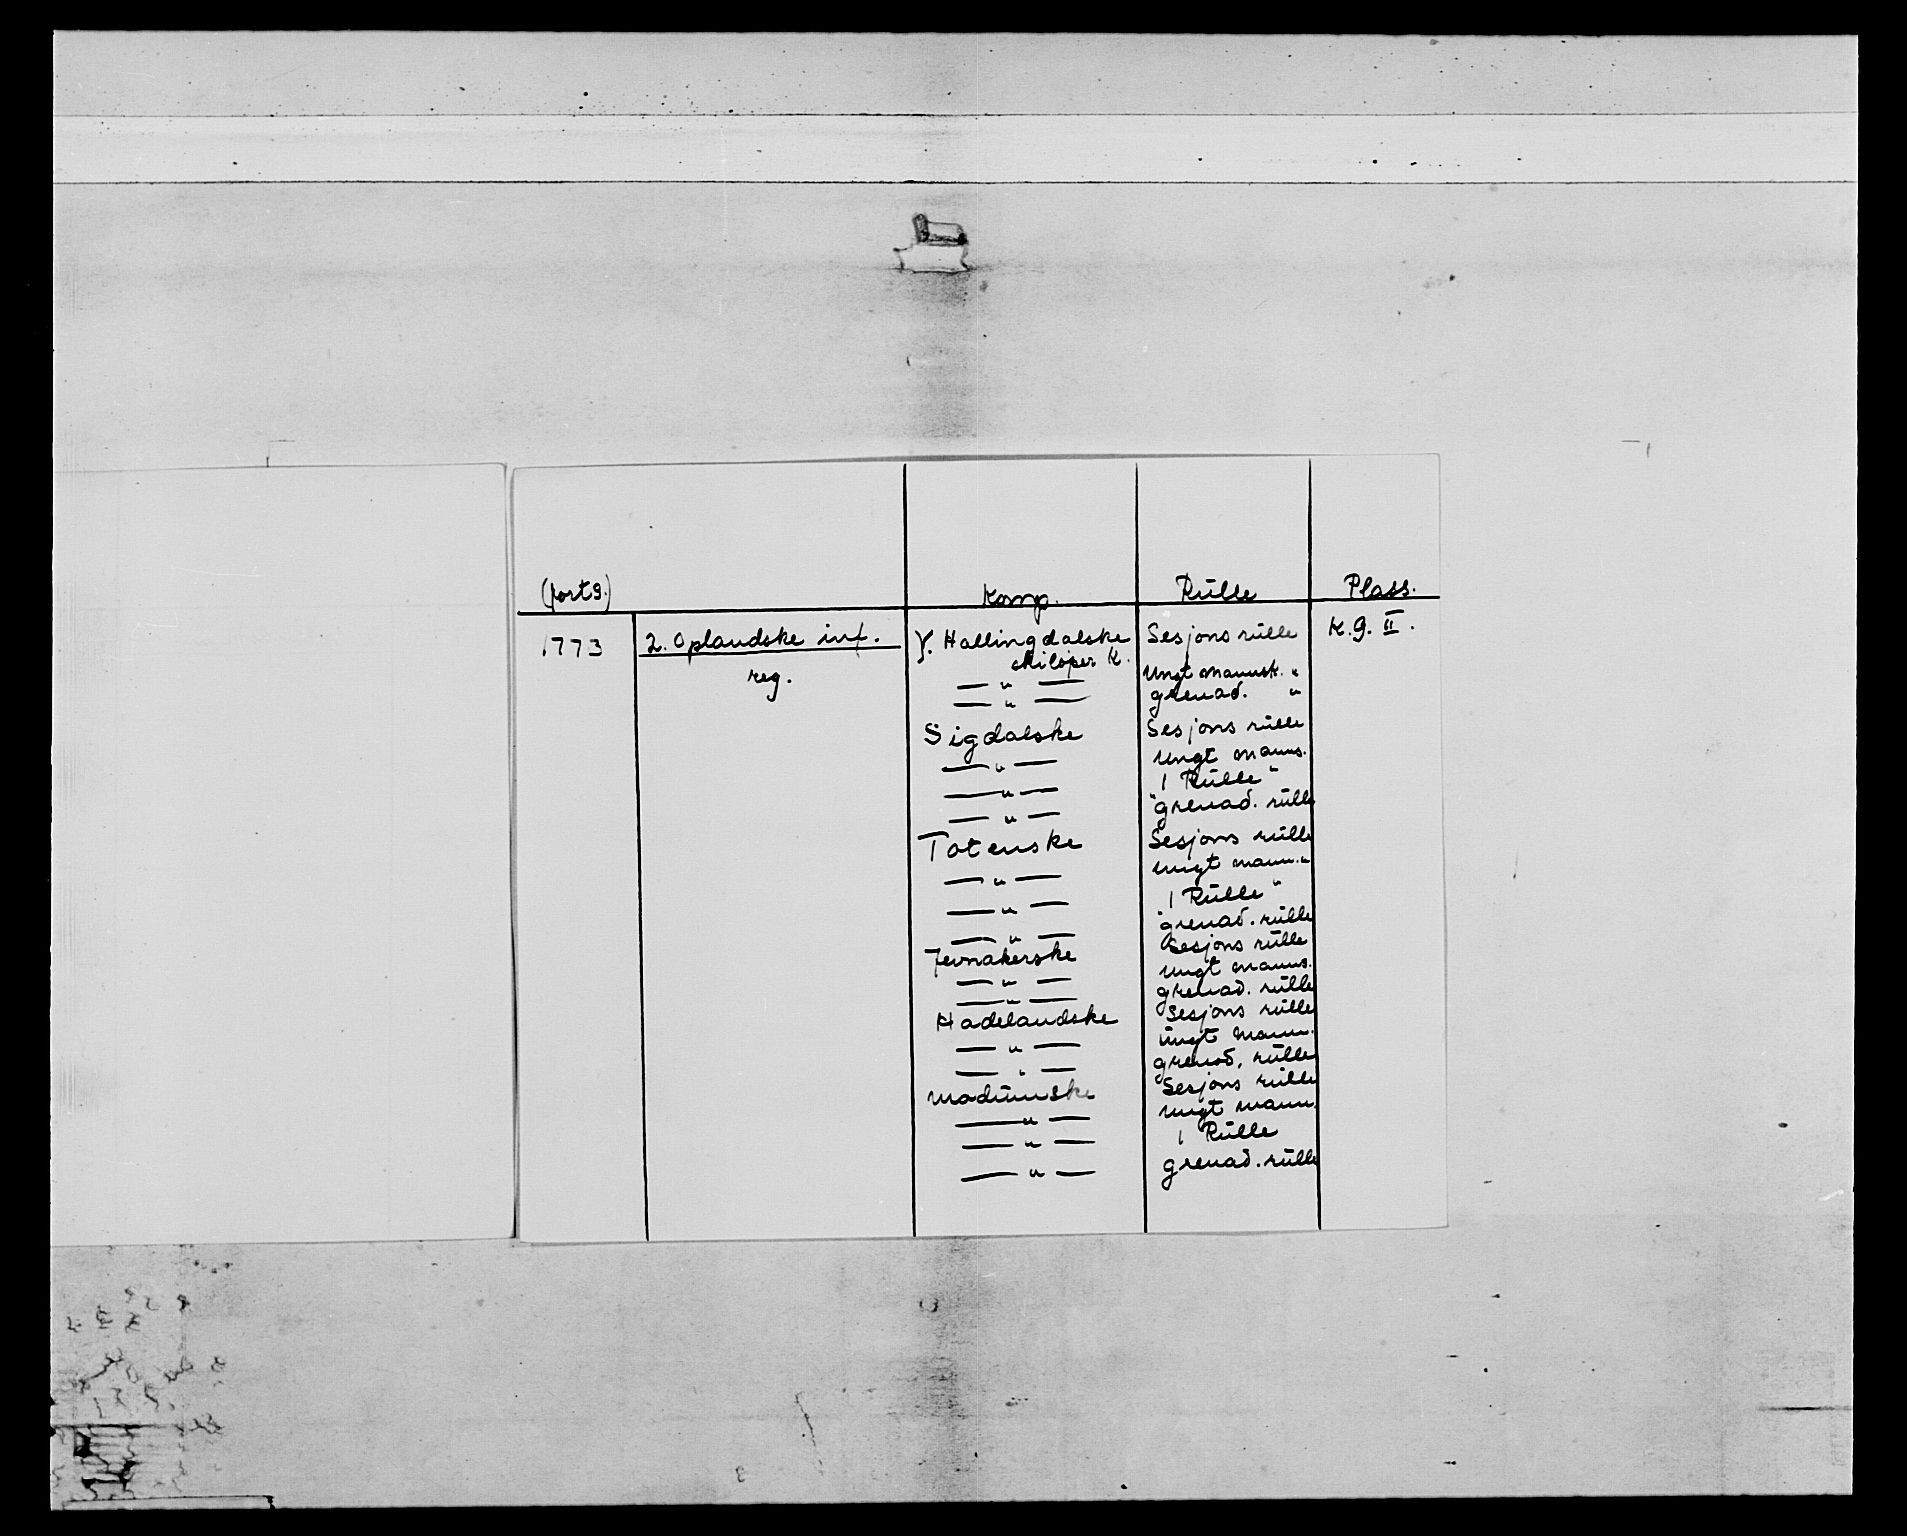 (forts.) Komp. Rülle Plass.
1773 2. Oplandske inf. Hallingdalske Sesjons rülle K.g. II.
reg. skiløper K.
— " — Ungt mannsk. "
— " — grenad. "
Sigdalske Sesjons rülle
— " — ungt manns.
— " — 1 Rülle "
— " — "grenad. rülle
Totenske Sesjons rülle
— " — ungt mann. "
— " — 1 Rülle "
— " — "grenad. rülle
Jevnakerske Sesjons rülle
— " — ungt manns.
— " — grenad. rülle
Hadelandske Sesjons rülle
— " — üngt mann.
— " — grenad. rülle
Modümske Sesjons rülle
— " — ungt mann.
— " — 1 Rülle
— " — grenad. rülle